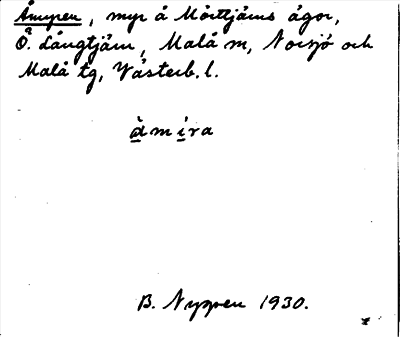 Åmyren, myr å Mörttjärns ägor,
Ö. Långtjärn, Malå m, Norsjö och
Malå tg, Västerb. l.
àmíra
B. Nyppen 1930.